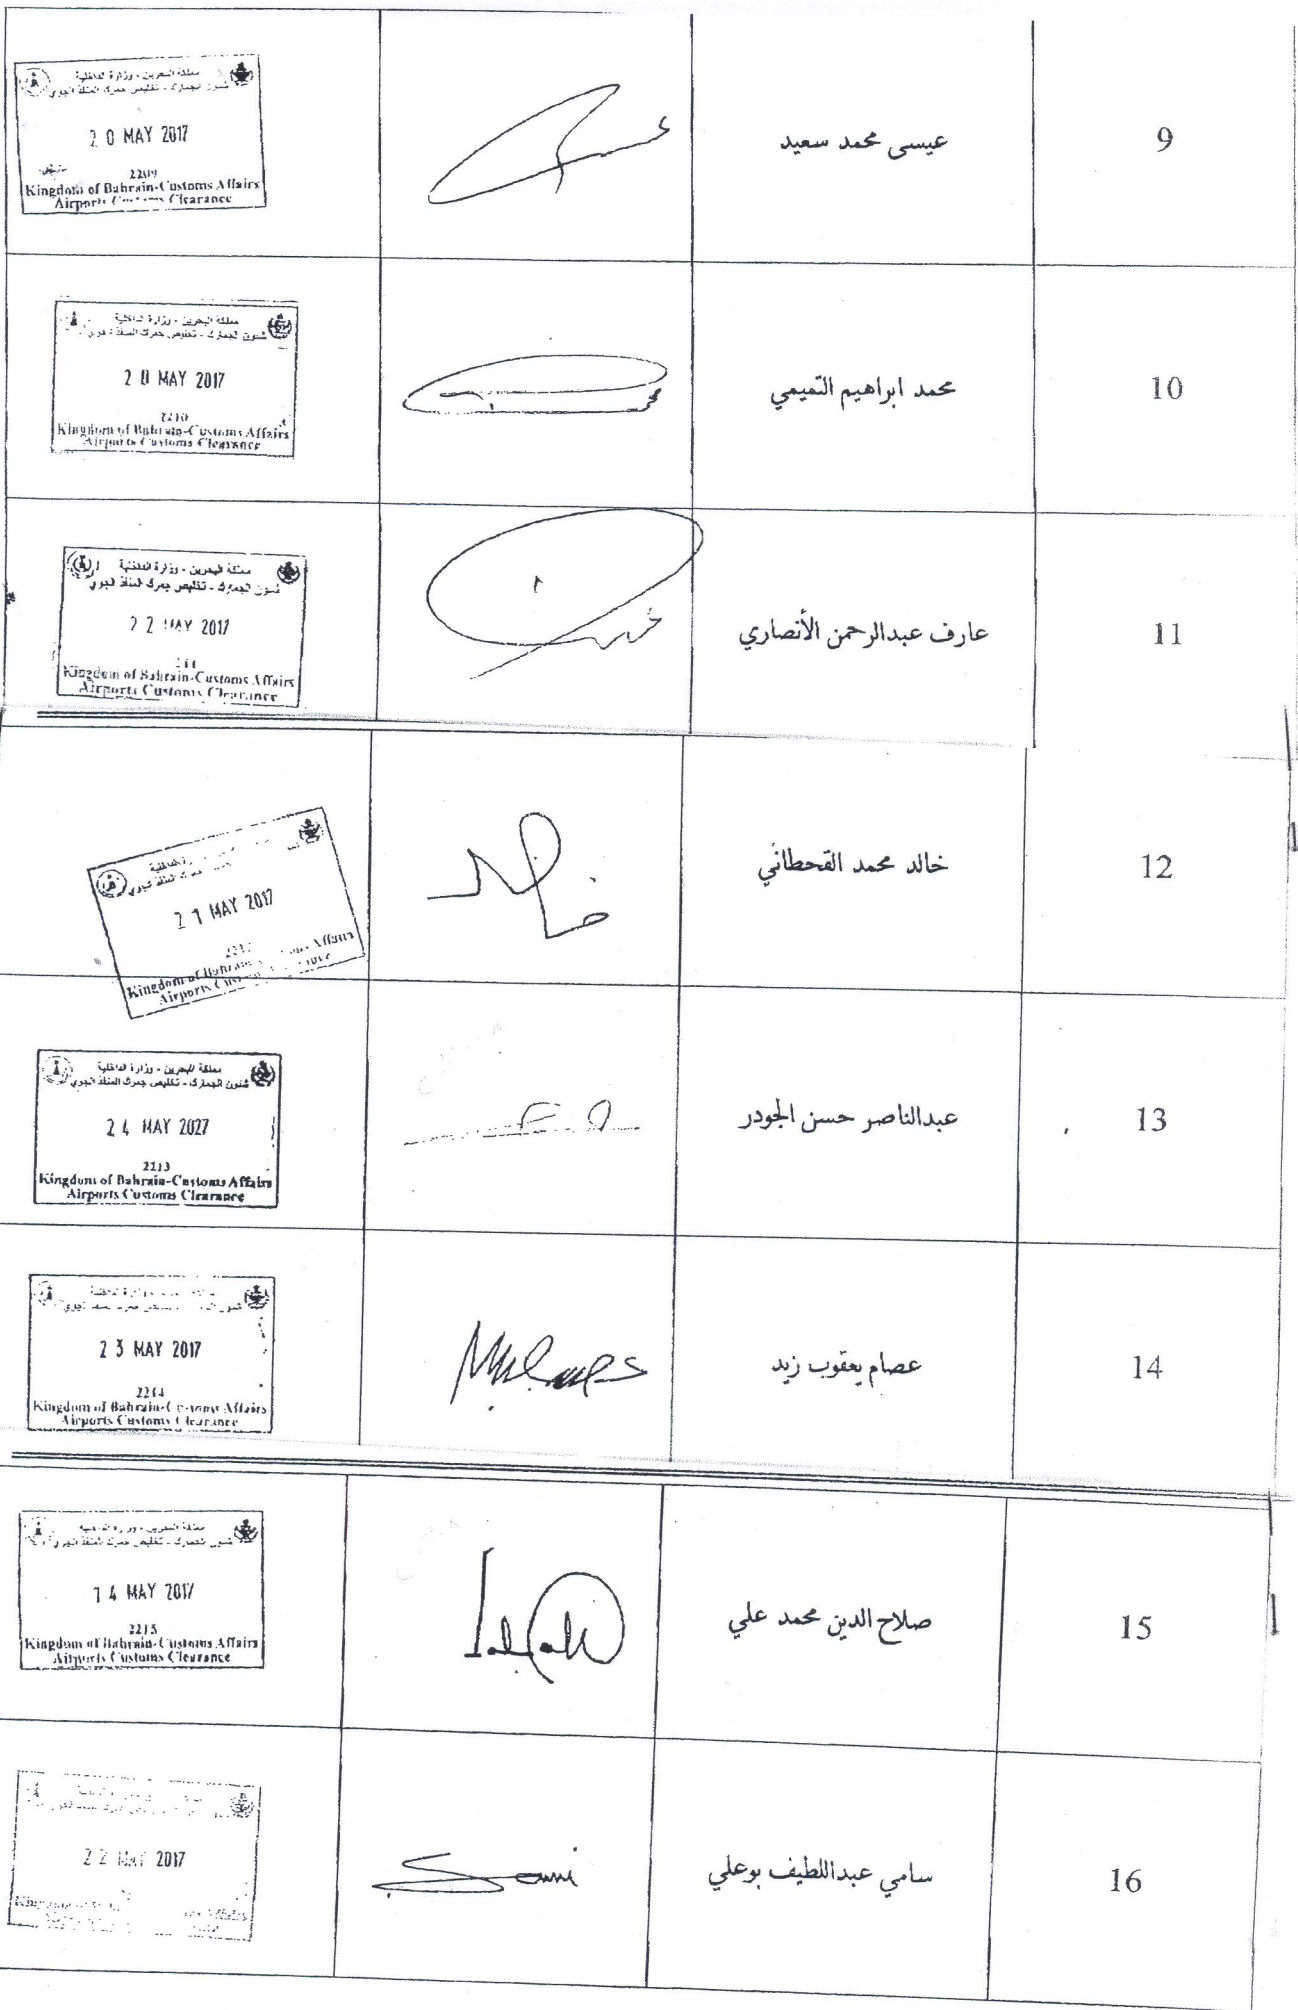 9
عيسى محمد سعيد
مملكة البحرين - وزارة الداخلية
شئون الجمارك - تخليص جمرك المنفذ الجوي
20 MAY 2017
2209
Kingdom of Bahrain-Customs Affairs
Airports Customs Clearance
10
محمد ابراهيم التميمي
مملكة البحرين - وزارة الداخلية
شئون الجمارك - تخليص جمرك المنفذ الجوي
20 MAY 2017
2210
Kingdom of Bahrain-Customs Affairs
Airports Customs Clearance
11
عارف عبدالرحمن الأنصاري
مملكة البحرين - وزارة الداخلية
شئون الجمارك - تخليص جمرك المنفذ الجوي
22 MAY 2017
Kingdom of Bahrain-Customs Affairs
Airports Customs Clearance
12
خالد محمد القحطاني
21 MAY 2017
Kingdom of Bahrain Customs Affairs
Airports
13
عبدالناصر حسن الجودر
مملكة البحرين - وزارة الداخلية
شئون الجمارك - تخليص جمرك المنفذ الجوي
24 MAY 2027
2213
Kingdom of Bahrain-Customs Affairs
Airports Customs Clearance
14
عصام يعقوب زيد
23 MAY 2017
2214
Kingdom of Bahrain-Customs Affairs
Airports Customs Clearance
15
صلاح الدين محمد علي
مملكة البحرين - وزارة الداخلية
شئون الجمارك - تخليص جمرك المنفذ الجوي
14 MAY 2017
2215
Kingdom of Bahrain-Customs Affairs
Airports Customs Clearance
16
سامي عبداللطيف بوعلي
Sami
22 MAY 2017